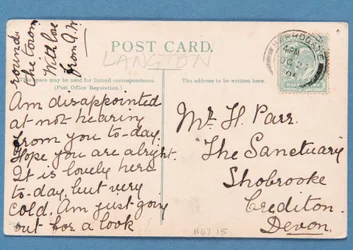 Am disappointed
at not hearing
from you to-day.
Hope you are alright.
It is lovely here
to-day, but very
cold. Am just going
out for a look
round
the town
With love
from A.W.
POST CARD.
LANGTON
may be used for Inland correspondence.
(Post Office Regulation.)
The address to be written here.
HARROGATE
Mr H. Parr.
"The Sanctuary
Shobrooke
Crediton
Devon.